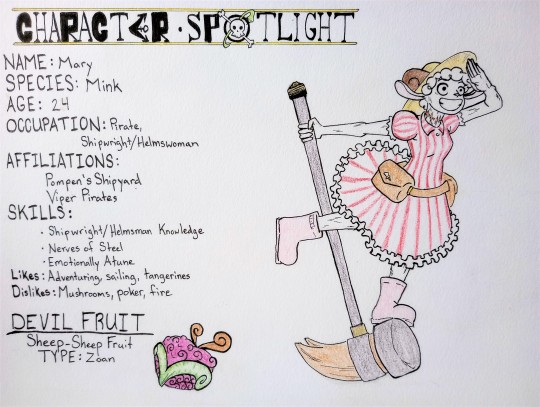 CHARACTER · SPOTLIGHT
NAME: Mary
SPECIES: Mink
AGE: 24
OCCUPATION: Pirate,
Shipwright/Helmswoman
AFFILIATIONS:
Pompen's Shipyard
Viper Pirates
SKILLS:
· Shipwright/Helmsman Knowledge
· Nerves of Steel
· Emotionally Atune
Likes: Adventuring, sailing, tangerines
Dislikes: Mushrooms, poker, fire
DEVIL FRUIT
Sheep-Sheep Fruit
TYPE: Zoan